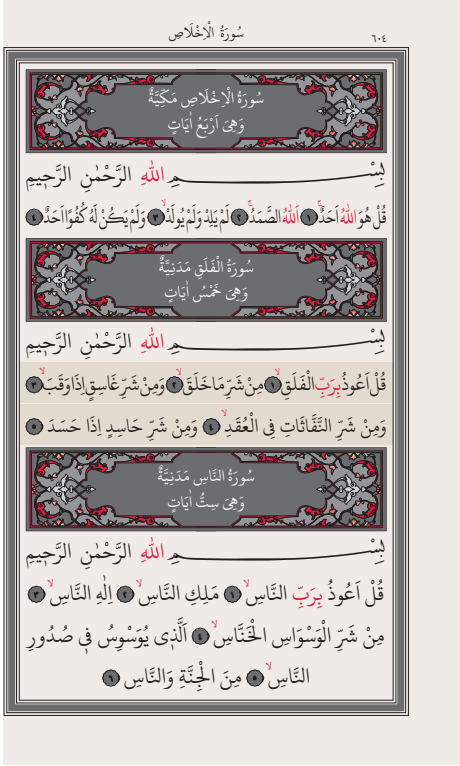 سُورَةُ الْاِخْلَاصِ
٦٠٤
سُورَةُ الْاِخْلَاصِ مَكِّيَّةٌ
وَهِىَ اَرْبَعُ اٰيَاتٍ
بِسْمِ اللّٰهِ الرَّحْمٰنِ الرَّحٖيمِ
قُلْ هُوَ اللّٰهُ اَحَدٌۚ ١ اَللّٰهُ الصَّمَدُۚ ٢ لَمْ يَلِدْ وَلَمْ يُولَدْۙ ٣ وَلَمْ يَكُنْ لَهُ كُفُوًا اَحَدٌ ٤
سُورَةُ الْفَلَقِ مَدَنِيَّةٌ
وَهِىَ خَمْسُ اٰيَاتٍ
بِسْمِ اللّٰهِ الرَّحْمٰنِ الرَّحٖيمِ
قُلْ اَعُوذُ بِرَبِّ الْفَلَقِۙ ١ مِنْ شَرِّ مَا خَلَقَۙ ٢ وَمِنْ شَرِّ غَاسِقٍ اِذَا وَقَبَۙ ٣
وَمِنْ شَرِّ النَّفَّاثَاتِ فِى الْعُقَدِۙ ٤ وَمِنْ شَرِّ حَاسِدٍ اِذَا حَسَدَ ٥
سُورَةُ النَّاسِ مَدَنِيَّةٌ
وَهِىَ سِتُّ اٰيَاتٍ
بِسْمِ اللّٰهِ الرَّحْمٰنِ الرَّحٖيمِ
قُلْ اَعُوذُ بِرَبِّ النَّاسِۙ ١ مَلِكِ النَّاسِۙ ٢ اِلٰهِ النَّاسِۙ ٣
مِنْ شَرِّ الْوَسْوَاسِ الْخَنَّاسِۙ ٤ اَلَّذٖى يُوَسْوِسُ فٖى صُدُورِ
النَّاسِۙ ٥ مِنَ الْجِنَّةِ وَالنَّاسِ ٦